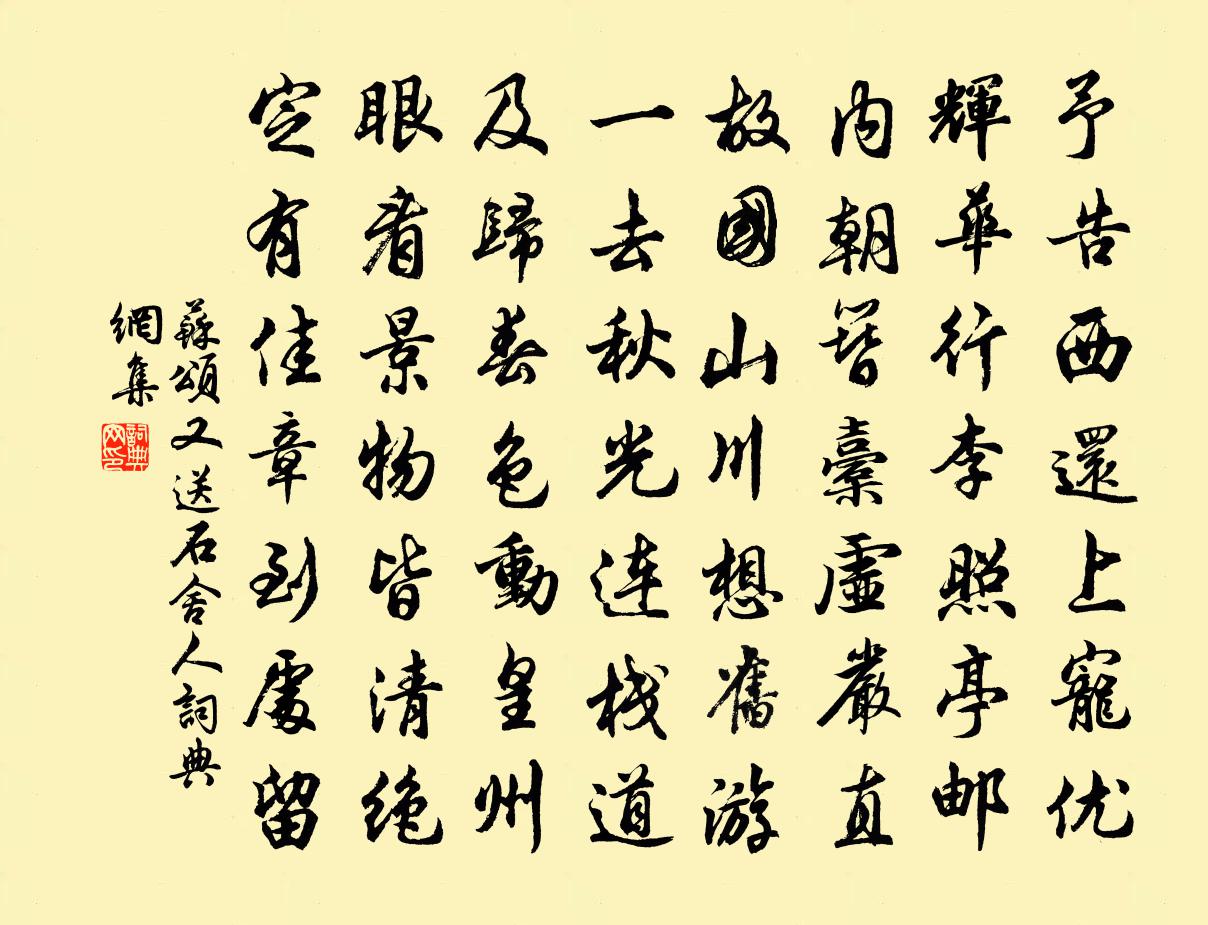 予告西還上寵优
輝華行李照亭邮
内朝簪橐虛嚴直
故國山川想舊游
一去秋光連棧道
及歸春色動皇州
眼看景物皆清絶
定有佳章到處留
蘇頌又送石舍人詞典
網集
詞典網印